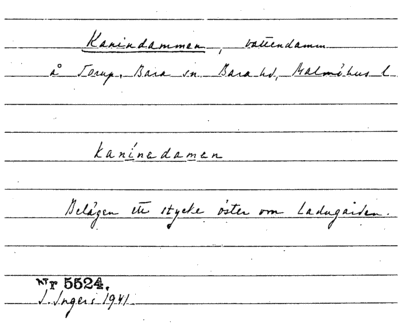 Kanindammen, vattendamm
å Torup, Bara sn. Bara hd, Malmöhus l
kanínedamen
Belägen ett stycke öster om Ladugården.
Nr 5524.
I. Ingers 1941.